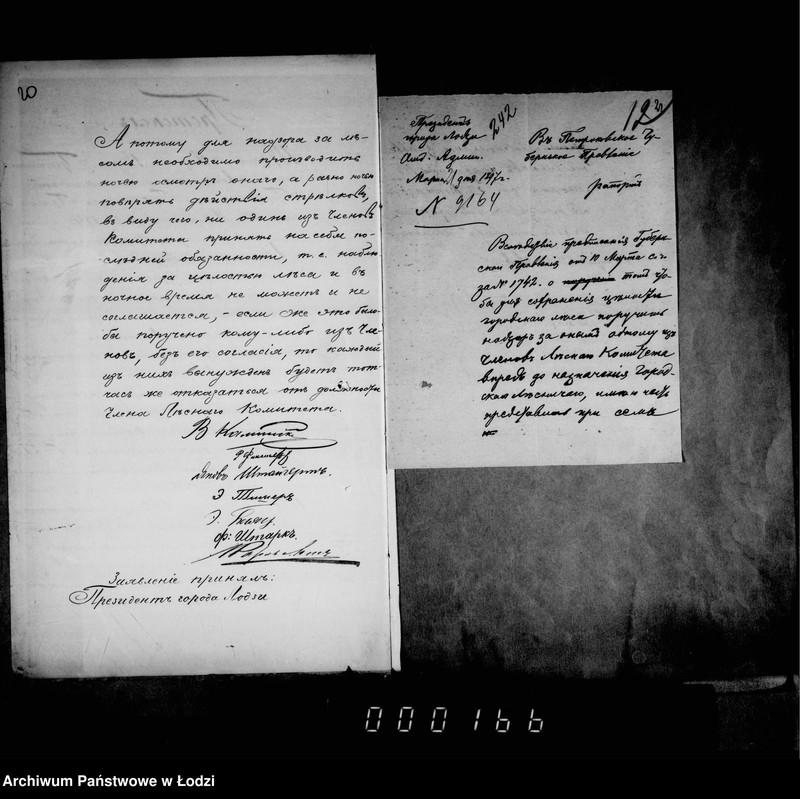 20
А потому для надзора за лѣ-
сомъ необходимо производить
ночью осмотръ онаго, а равно ночью
повѣрять дѣйствія стрѣлковъ,
въ виду чего, ни одинъ изъ Членовъ
Комитета принять на себя по-
слѣдней обязанности, т.е. наблю-
денія за цѣлостью лѣса и въ
ночное время не можетъ и не
соглашается, - если же это было
бы поручено кому-либо изъ Чле-
новъ, безъ его согласія, то каждый
изъ нихъ вынужденъ будетъ тот-
часъ же отказаться отъ должности
Члена Лѣснаго Комитета.
Штайгертъ.
Э
Э.
Ф: Штаркъ.
Заявленіе принялъ:
Президентъ города Лодзи
Президентъ
города Лодзи
Отд. Админ.
Марта дня
N 9164
242
122
Въ Петроковское Гу-
бернское Правленіе
рапортъ
Вслѣдствіе предписанія Губерн-
скаго Правленія отъ 10 Марта с.г.
за N 1742. о томъ что-
бы для сохраненія цѣлости
городскаго лѣса поручить
надзоръ за онымъ одному изъ
Членовъ Лѣснаго Комитета
впредь до назначенія Город-
скаго Лѣсничаго, имѣю честь
представить при семъ
000166
Archiwum Państwowe w Łodzi